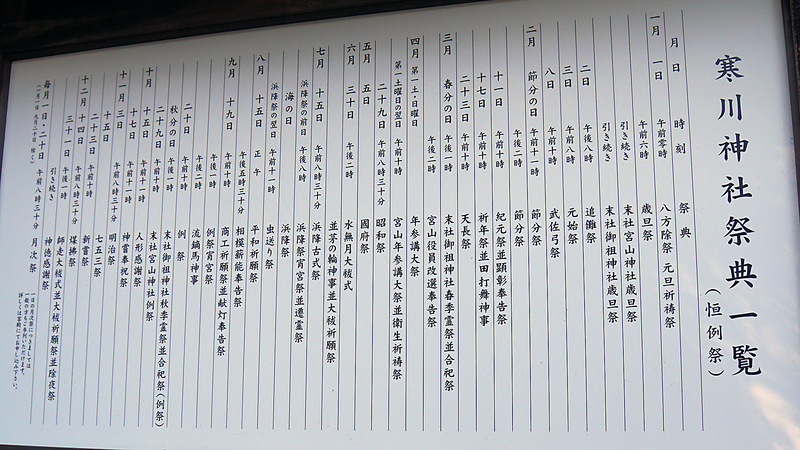 寒川神社祭典一覧
（恒例祭）
月 日 時刻 祭典
一月 一日 午前零時 八方除祭 元旦祈祷祭
午前六時 歳旦祭
引き続き 末社宮山神社歳旦祭
引き続き 末社御祖神社歳旦祭
二日 午後八時 追儺祭
三日 午前八時 元始祭
八日 午前十時 武佐弓祭
二月 節分の日 午前十一時 節分祭
午後二時 節分祭
十一日 午前十時 紀元祭並顕彰奉告祭
十七日 午前十時 祈年祭並田打舞神事
二十三日 午前十時 天長祭
三月 春分の日 午後一時 末社御祖神社春季霊祭並合祀祭
午後二時 宮山役員改選奉告祭
四月 第一土・日曜日 午前十時 年参講大祭
第一土曜日の翌日 午前十時 宮山年参講大祭並衛生祈祷祭
二十九日 午前八時三十分 昭和祭
五月 五日 國府祭
六月 三十日 午後二時 水無月大祓式
並茅の輪神事並大祓祈願祭
七月 十五日 午前八時三十分 浜降古式祭
浜降祭の前日 午後八時 浜降祭宵宮祭並遷霊祭
海の日 浜降祭
浜降祭の翌日 午前十一時 虫送り祭
八月 十五日 正午 平和祈願祭
午後五時三十分 相模薪能奉告祭
九月 十九日 午前十時 商工祈願祭並献灯奉告祭
午後二時 例祭宵宮祭
午後二時 流鏑馬神事
二十日 午前十時 例祭
秋分の日 午後一時 末社御祖神社秋季霊祭並合祀祭（例祭）
二十九日 午前十時 末社宮山神社例祭
十月 十五日 午前十時 人形感謝祭
十七日 午前十一時 神嘗奉祝祭
十一月 三日 午前八時三十分 明治祭
十五日 七五三祭
二十三日 午前十時 新嘗祭
十二月 十四日 午前八時三十分 煤拂祭
三十一日 午後一時 師走大祓式並大祓祈願祭並除夜祭
引き続き 神徳感謝祭
毎月一日・二十日 午前八時三十分 月次祭
（一月一日 九月二十日 除く）
一日の月次祭につきましては
一般の方もご参列いただけます。
詳しくは客殿にてお申し込み下さい。